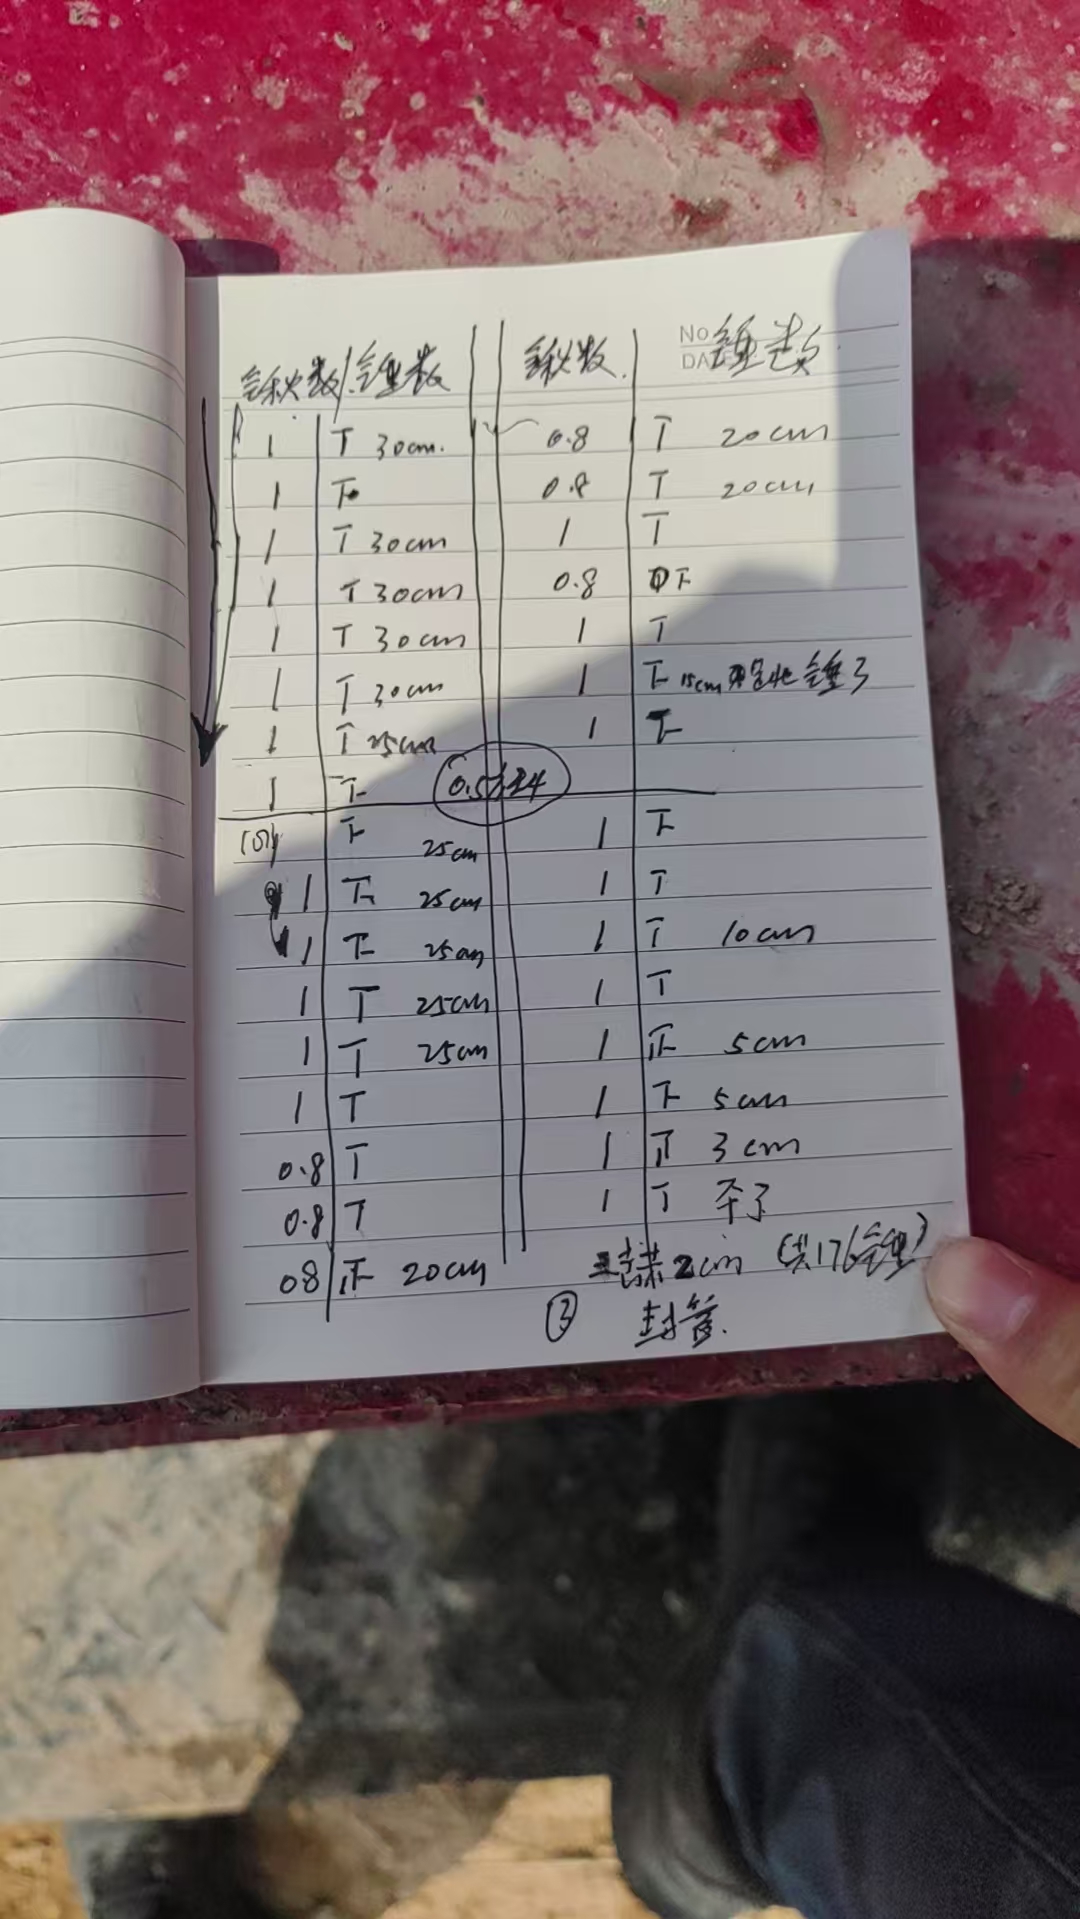 锹数 锤数 锹数 锤数
NO
DA
1 T 30cm. 0.8 T 20cm
1 下 0.8 T 20cm
1 T 30cm 1 T
1 T 30cm 0.8 下
1 T 30cm 1 T
1 T 30cm 1 下 15cm 锤了
1 T 25cm 1 下
1 下
0.5
下 25cm 1 下
1 下 25cm 1 T
1 下 25cm 1 T 10cm
1 T 25cm 1 T
1 T 25cm 1 正 5cm
1 T 1 下 5cm
0.8 T 1 正 3cm
0.8 T 1 T 夯了
08 正 20cm 2cm (共176锤)
③ 封管.